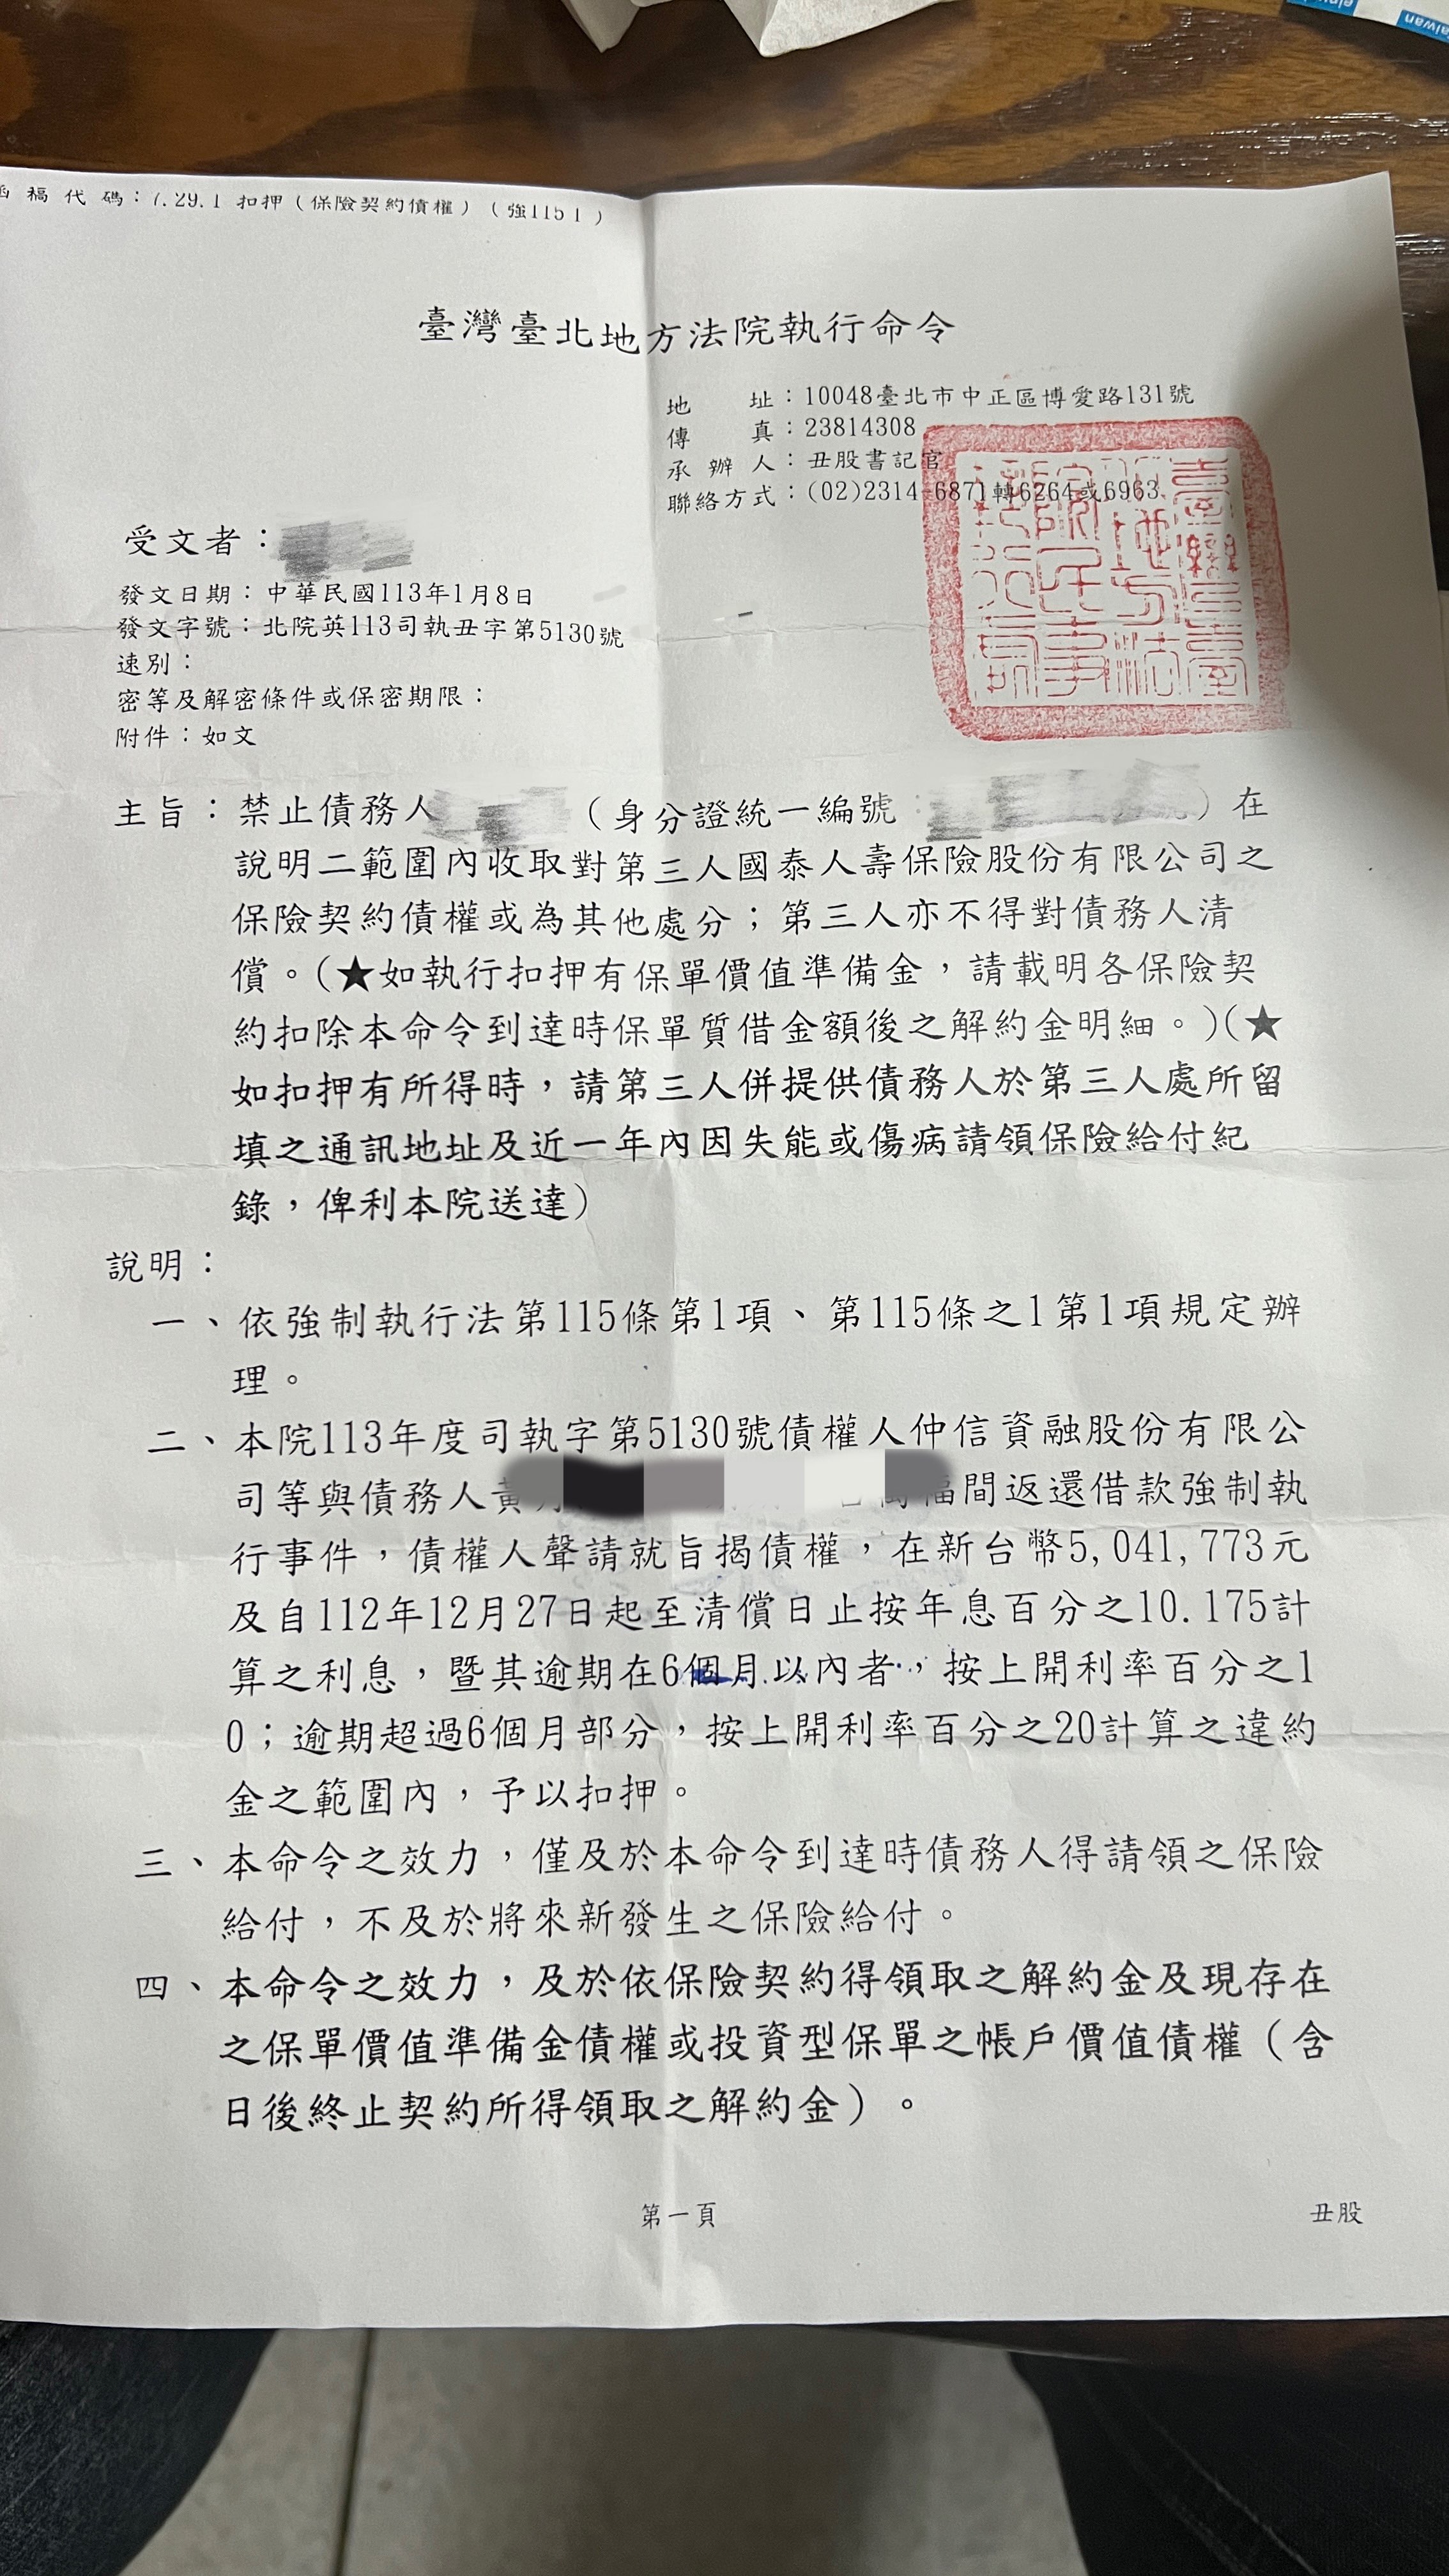 稿代碼：7.29.1 扣押（保險契約債權）（強1151）
臺灣臺北地方法院執行命令
地　　址：10048臺北市中正區博愛路131號
傳　　真：23814308
承 辦 人：丑股書記官
聯絡方式：(02)2314-6871轉6264或6963
受文者：
發文日期：中華民國113年1月8日
發文字號：北院英113司執丑字第5130號
速別：
密等及解密條件或保密期限：
附件：如文
主旨：禁止債務人（身分證統一編號：）在
說明二範圍內收取對第三人國泰人壽保險股份有限公司之
保險契約債權或為其他處分；第三人亦不得對債務人清
償。(★如執行扣押有保單價值準備金，請載明各保險契
約扣除本命令到達時保單質借金額後之解約金明細。)(★
如扣押有所得時，請第三人併提供債務人於第三人處所留
填之通訊地址及近一年內因失能或傷病請領保險給付紀
錄，俾利本院送達)
說明：
一、依強制執行法第115條第1項、第115條之1第1項規定辦
理。
二、本院113年度司執字第5130號債權人仲信資融股份有限公
司等與債務人黃間返還借款強制執
行事件，債權人聲請就旨揭債權，在新台幣5,041,773元
及自112年12月27日起至清償日止按年息百分之10.175計
算之利息，暨其逾期在6個月以內者，按上開利率百分之1
0；逾期超過6個月部分，按上開利率百分之20計算之違約
金之範圍內，予以扣押。
三、本命令之效力，僅及於本命令到達時債務人得請領之保險
給付，不及於將來新發生之保險給付。
四、本命令之效力，及於依保險契約得領取之解約金及現存在
之保單價值準備金債權或投資型保單之帳戶價值債權（含
日後終止契約所得領取之解約金）。
第一頁
丑股